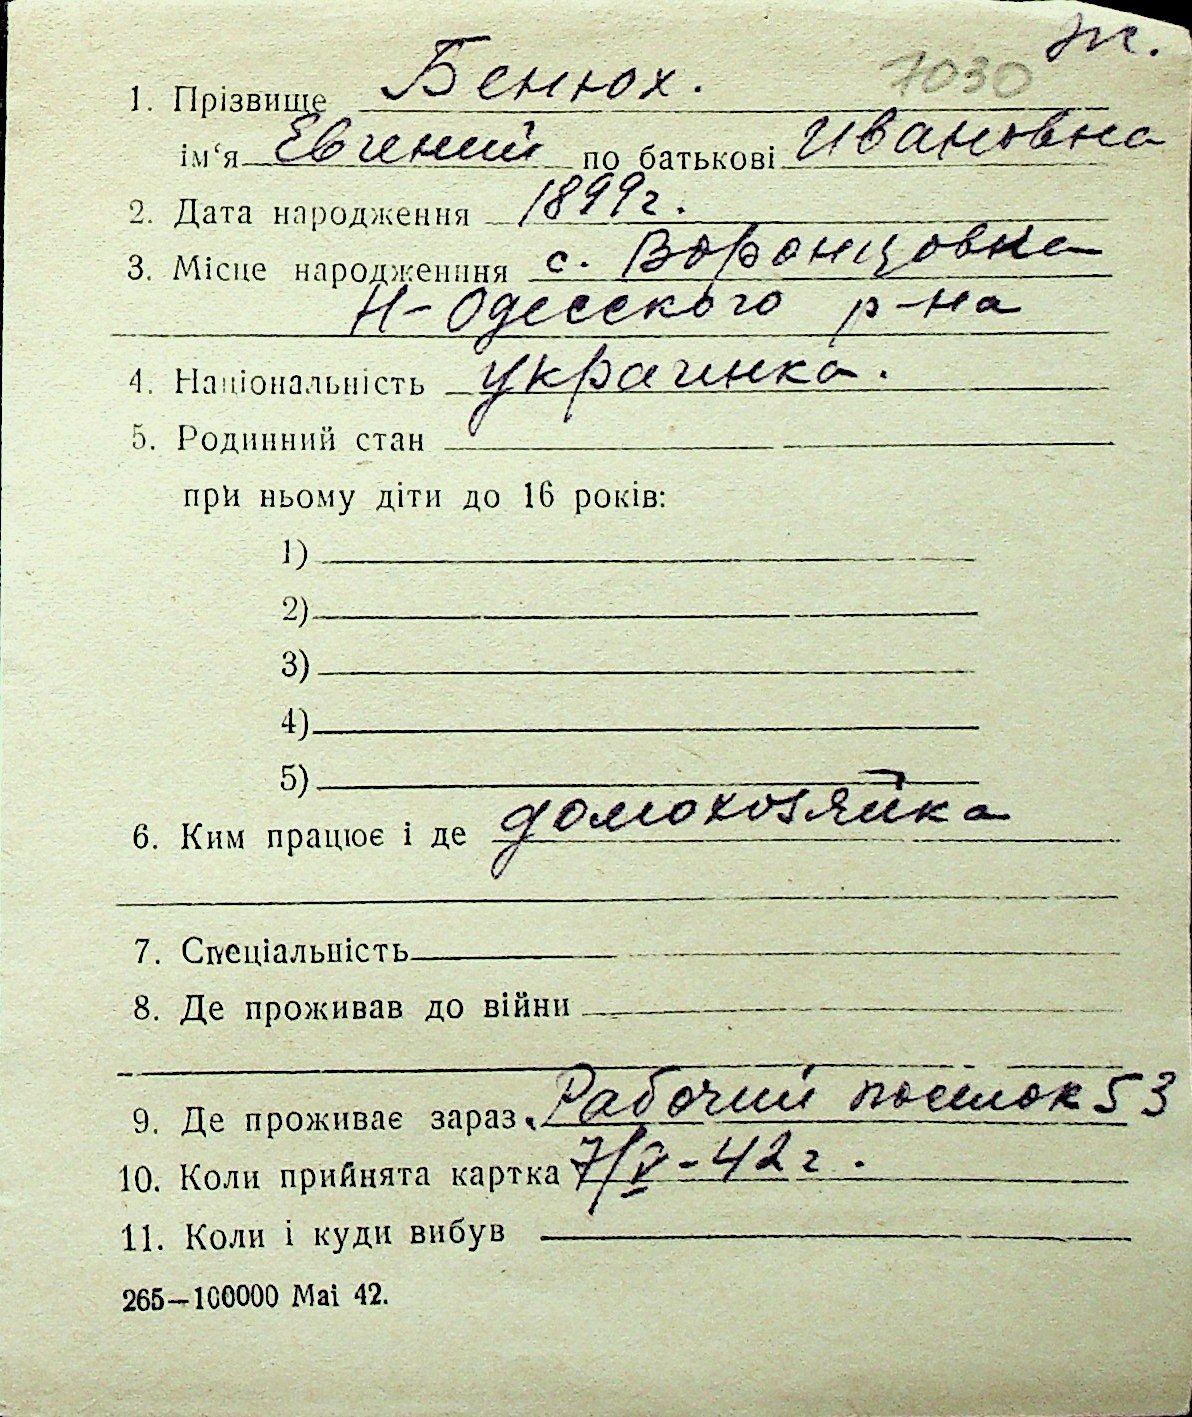 ж.
7030
1. Прізвище Бенюх.
ім‘я Евгений по батькові Ивановна
2. Дата народження 1899г.
3. Місце народженння с. Воронцовка
Н-Одесского р-на
4. Національність украинка.
5. Родинний стан
при ньому діти до 16 років:
1)
2)
3)
4)
5)
6. Ким працює і де домохозяйка
7. Спеціальність
8. Де проживав до війни
9. Де проживає зараз Рабочий поселок 53
10. Коли прийнята картка 7/V-42г.
11. Коли і куди вибув
265—100000 Mai 42.